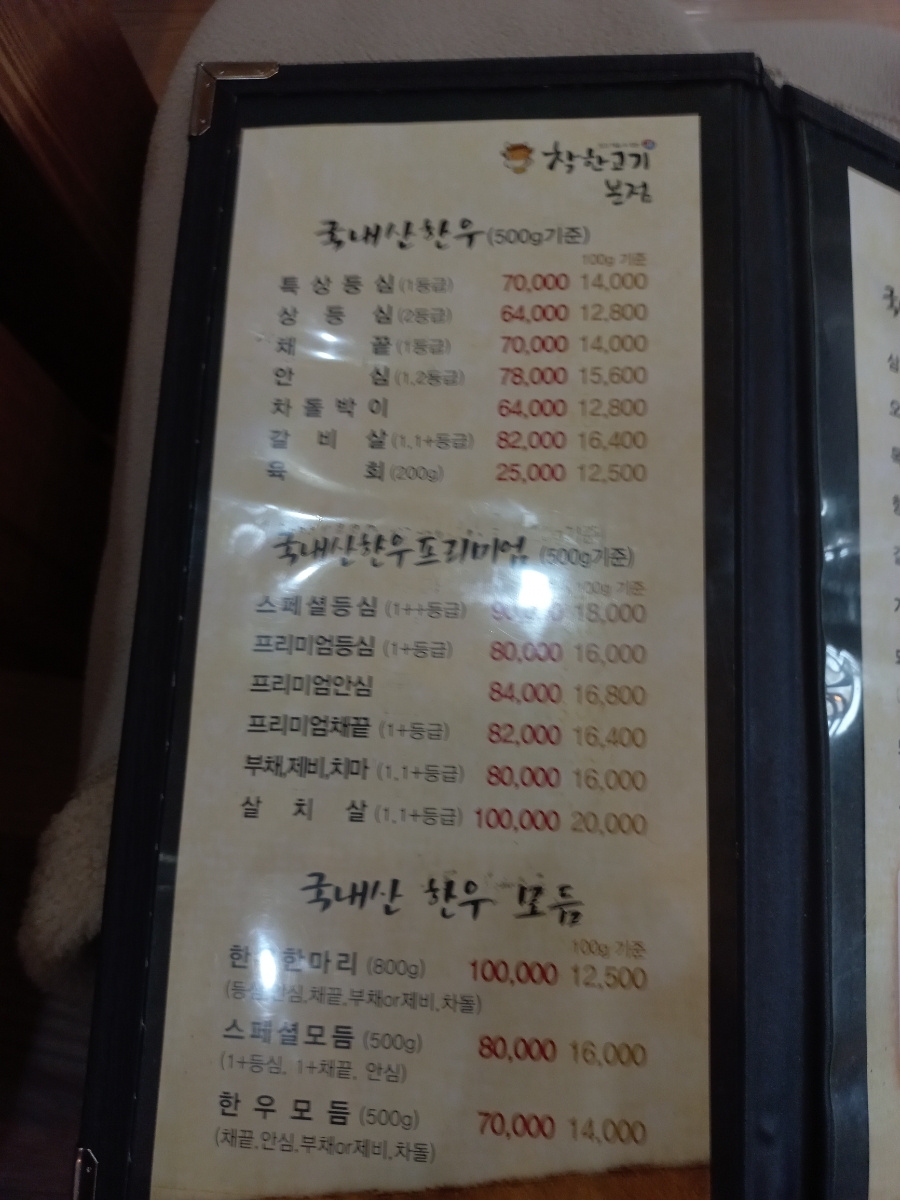 착한고기
본점
국내산한우(500g기준)
100g 기준
특상등심(1등급) 70,000 14,000
상등심(2등급) 64,000 12,800
채끝(1등급) 70,000 14,000
안심(1,2등급) 78,000 15,600
차돌박이 64,000 12,800
갈비살(1,1+등급) 82,000 16,400
육회(200g) 25,000 12,500
국내산한우프리미엄 (500g기준)
100g 기준
스페셜등심 (1++등급) 18,000
프리미엄등심 (1+등급) 80,000 16,000
프리미엄안심 84,000 16,800
프리미엄채끝 (1+등급) 82,000 16,400
부채,제비,치마 (1,1+등급) 80,000 16,000
살치살(1,1+등급) 100,000 20,000
국내산 한우 모듬
100g 기준
한마리 (800g) 100,000 12,500
채끝,부채or제비,차돌)
스페셜모듬 (500g) 80,000 16,000
(1+등심, 1+채끝, 안심)
한우모듬 (500g) 70,000 14,000
(채끝,안심,부채or제비,차돌)